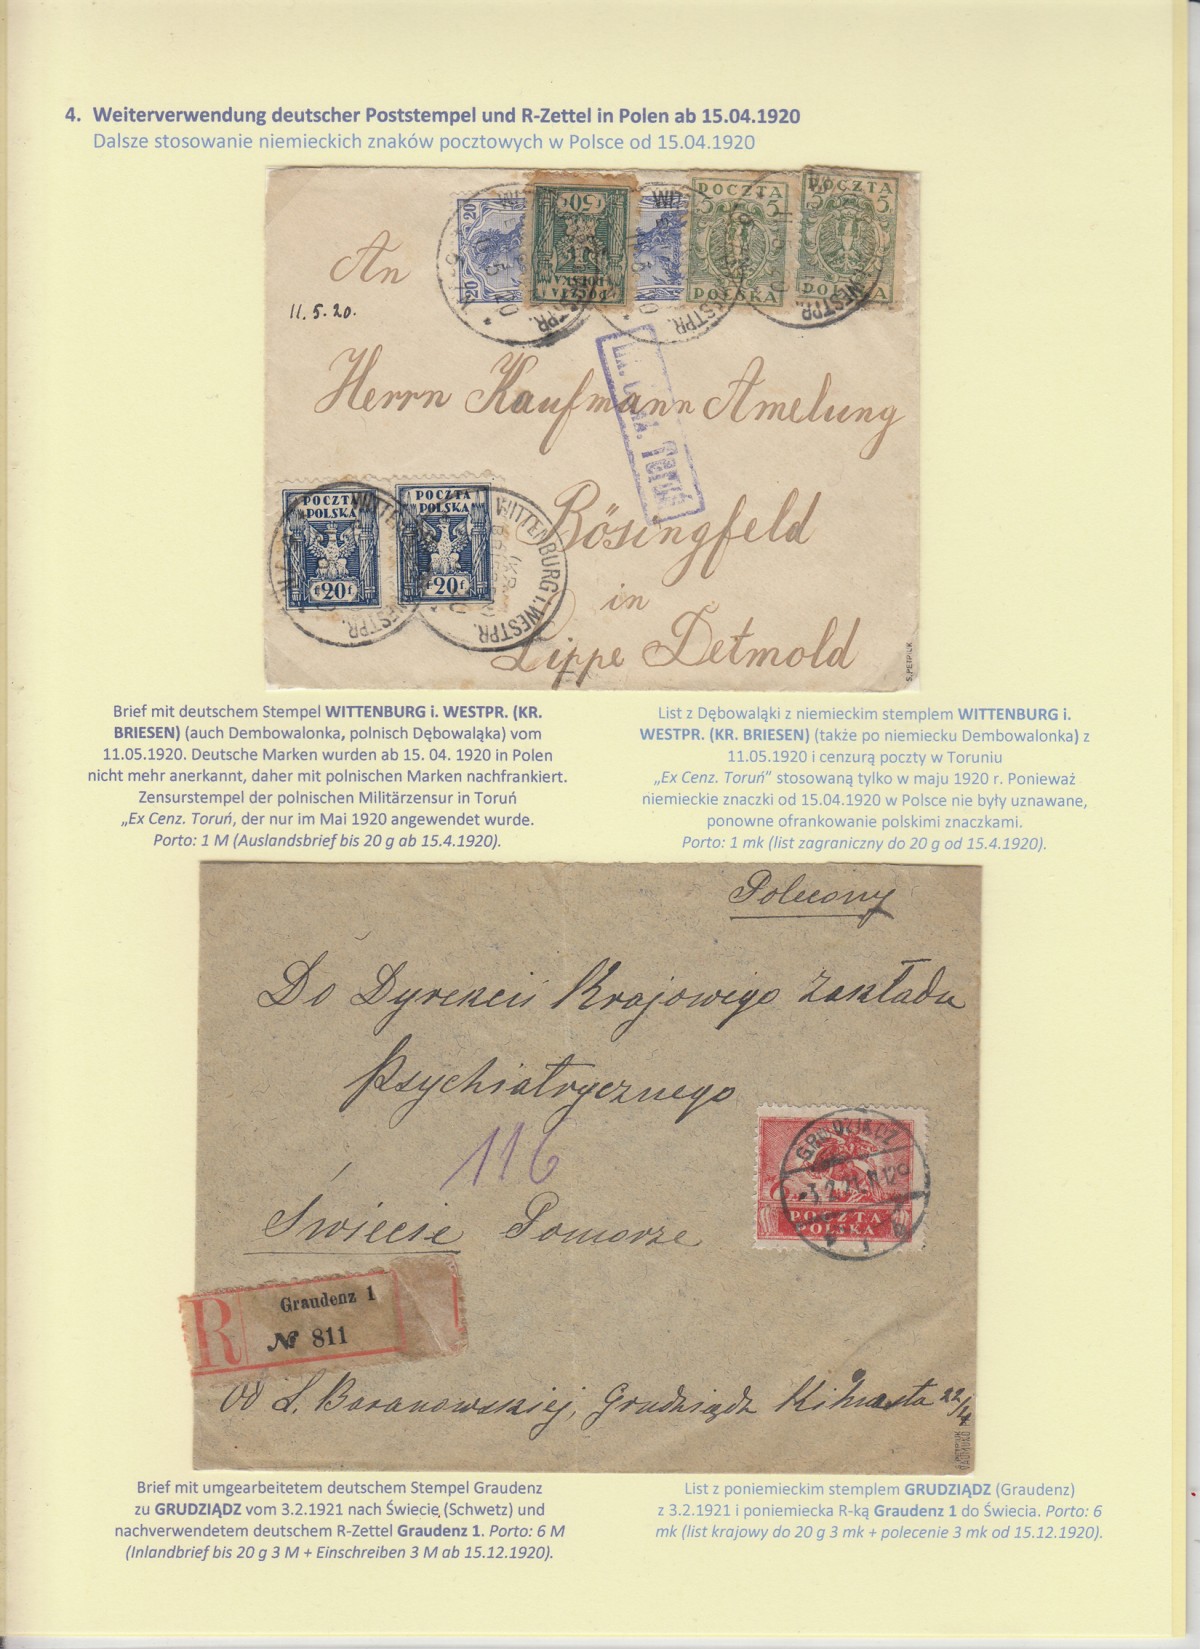 4. Weiterverwendung deutscher Poststempel und R-Zettel in Polen ab 15.04.1920
Dalsze stosowanie niemieckich znaków pocztowych w Polsce od 15.04.1920
20
50
20
POCZTA
5 5
POLSKA
POCZTA
5 5
POLSKA
POCZTA
POLSKA
WESTPR.
WESTPR.
WESTPR.
An
11.5.20.
Herrn Kaufmann Amelung
Bösingfeld
in
Lippe Detmold
POCZTA
POLSKA
f 20 f
POCZTA
POLSKA
f 20 f
WITTENBURG i. WESTPR.
WITTENBURG i. WESTPR.
(KR.
S. PETRIUK
Brief mit deutschem Stempel WITTENBURG i. WESTPR. (KR.
BRIESEN) (auch Dembowalonka, polnisch Dębowaląka) vom
11.05.1920. Deutsche Marken wurden ab 15. 04. 1920 in Polen
nicht mehr anerkannt, daher mit polnischen Marken nachfrankiert.
Zensurstempel der polnischen Militärzensur in Toruń
„Ex Cenz. Toruń, der nur im Mai 1920 angewendet wurde.
Porto: 1 M (Auslandsbrief bis 20 g ab 15.4.1920).
List z Dębowaląki z niemieckim stemplem WITTENBURG i.
WESTPR. (KR. BRIESEN) (także po niemiecku Dembowalonka) z
11.05.1920 i cenzurą poczty w Toruniu
„Ex Cenz. Toruń” stosowaną tylko w maju 1920 r. Ponieważ
niemieckie znaczki od 15.04.1920 w Polsce nie były uznawane,
ponowne ofrankowanie polskimi znaczkami.
Porto: 1 mk (list zagraniczny do 20 g od 15.4.1920).
Polecony
Do Dyrekcii Krajowego Zakładu
Psychiatrycznego
116
Świecie Pomorze
GRUDZIĄDZ
3.2.21.
POCZTA
POLSKA
R
Graudenz 1
№ 811
Od L. Baranowskiej, Grudziądz
Brief mit umgearbeitetem deutschem Stempel Graudenz
zu GRUDZIĄDZ vom 3.2.1921 nach Świecie (Schwetz) und
nachverwendetem deutschem R-Zettel Graudenz 1. Porto: 6 M
(Inlandbrief bis 20 g 3 M + Einschreiben 3 M ab 15.12.1920).
List z poniemieckim stemplem GRUDZIĄDZ (Graudenz)
z 3.2.1921 i poniemiecka R-ką Graudenz 1 do Świecia. Porto: 6
mk (list krajowy do 20 g 3 mk + polecenie 3 mk od 15.12.1920).